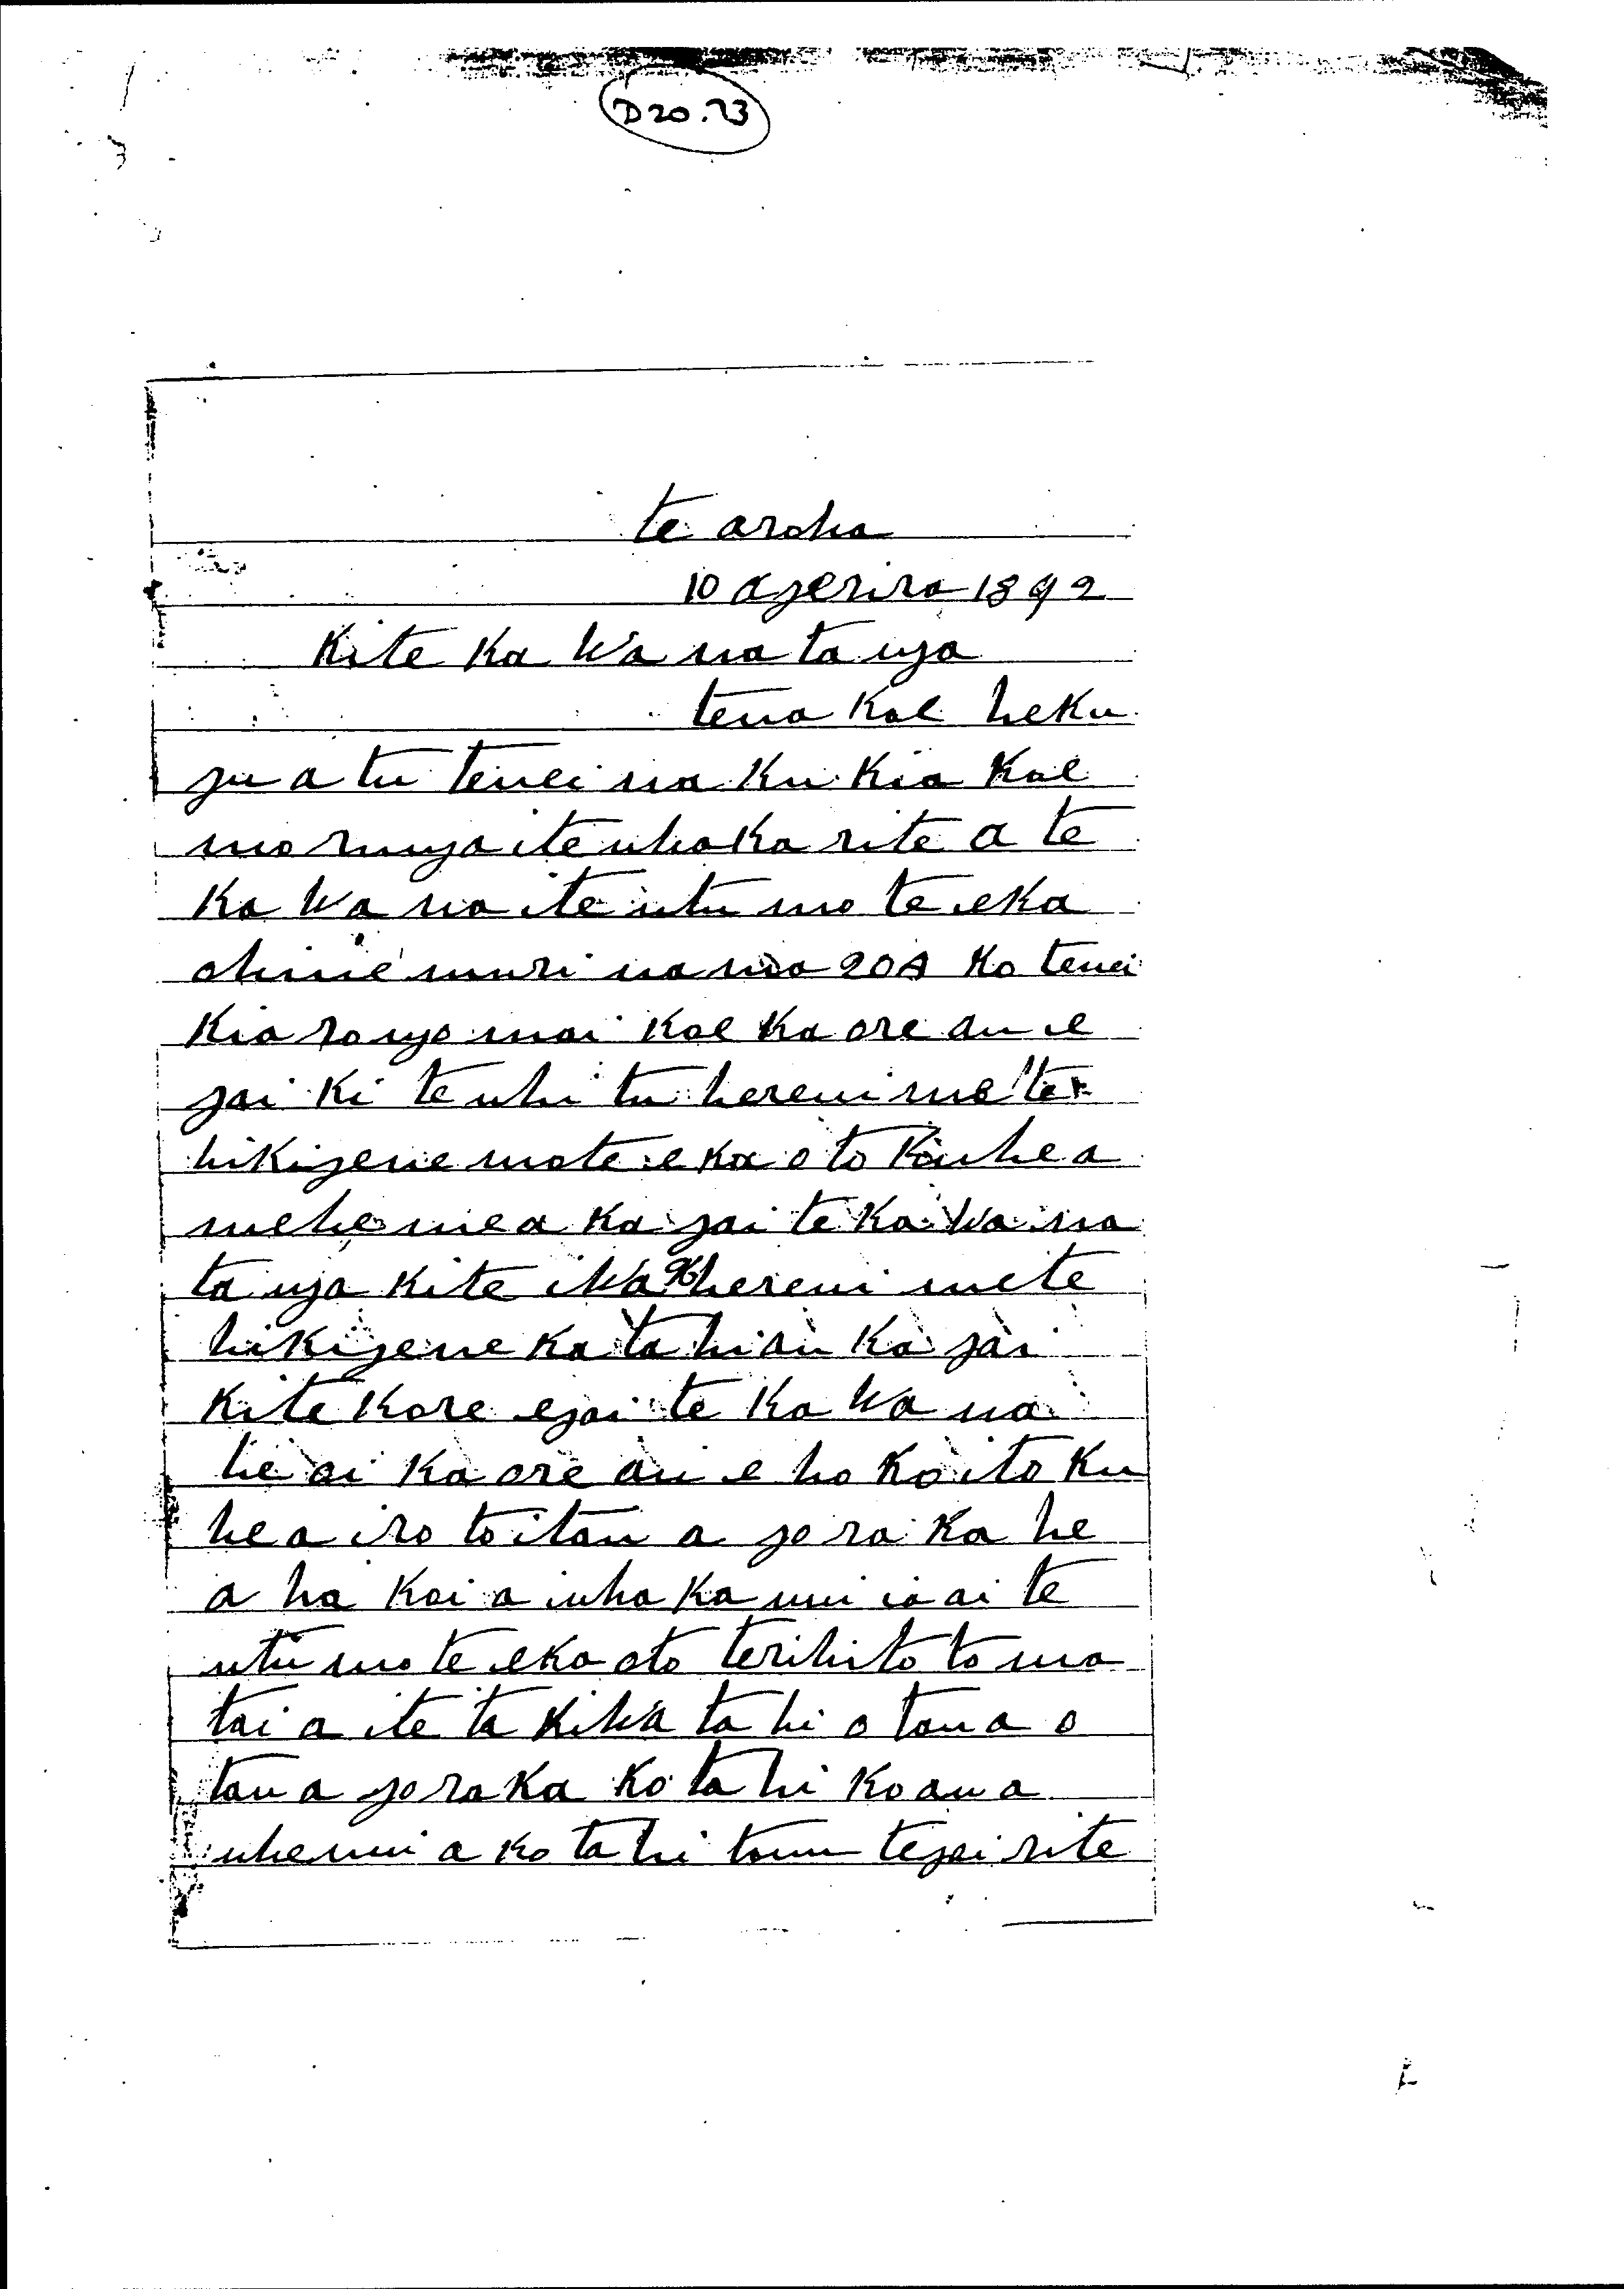 D20.23
te aroha
10 aperira 1892
Kite Ka Wa na ta nga
tena Koe heku
pu a tu tenei na Ku Kia Koe
mo runga ite whaKa rite a te
Ka Wa na ite utu mo te eKa
ohine muri na mo 20A Ko tenei
Kia rongo mai Koe Ka ore au e
pai Ki te whi tu hereni me te
hiKipene mo te eKa o to Ku hea
mehe mea Ka pai te Ka Wa na
ta nga Kite iWa 9/6 hereni me te
hiKipene Ka ta hi au Ka pai
Kite Kore epai te Ka Wa na
he oi Ka ore au e ho Ko ito Ku
hea iro to itau a po ra Ka he
a ha Koi a whaKa nui ia ai te
utu mo te eKa oto terihito to ma
tai a ite ta KiWa ta hi o tau a o
tau a po ra Ka Ko ta hi Ko au a
whenu a Ko ta hi tonu tepai rite